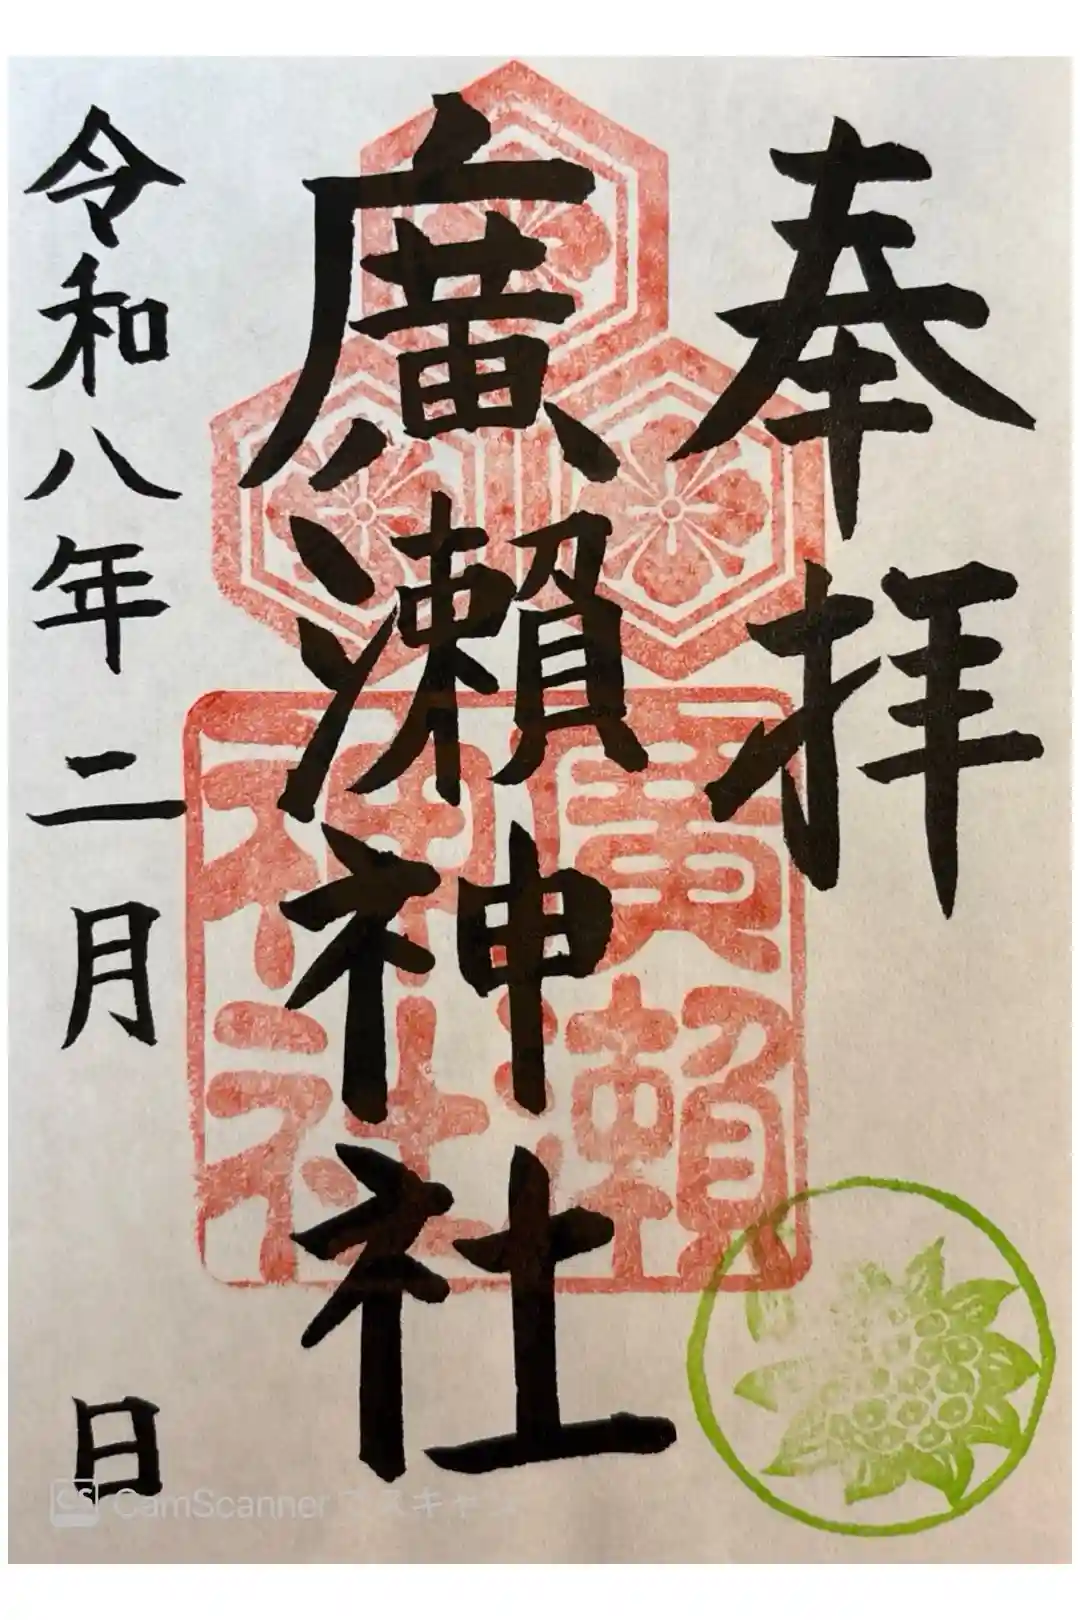 奉拝
廣瀬神社
廣瀬
神社
令和八年二月 日
CS CamScanner でスキャン